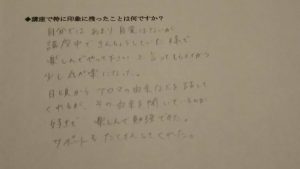 ◆講座で特に印象に残ったことは何ですか?
自分ではあまり自覚はないが
講座中できんちょうしていた様で
楽しんでやって下さいと言ってもらえてから
少し肩が楽になった。
日頃からアロマの由来などを話して
くれるが、その由来を聞いているのが
好きで 楽しんで勉強できた。
サポートもたくさんしてくれた。